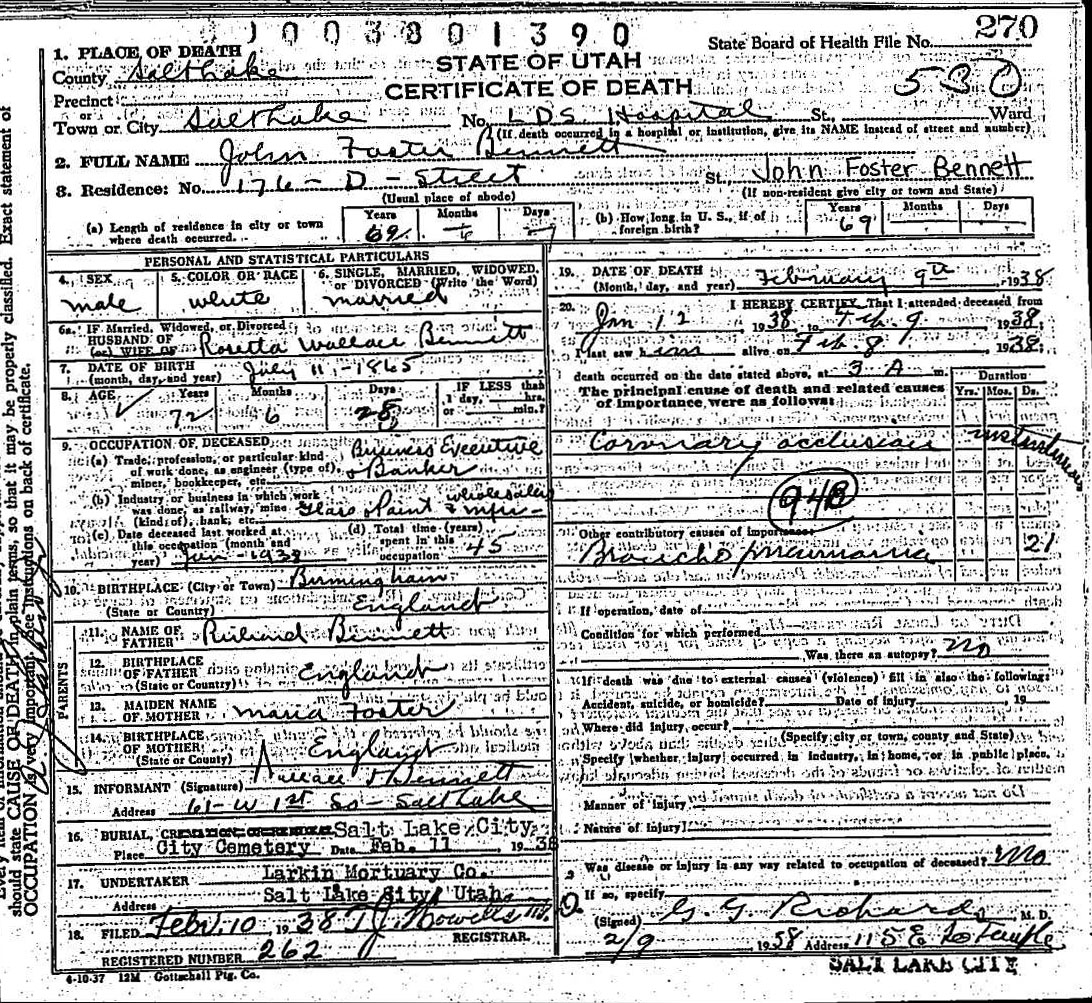 0003801390
State Board of Health File No. 270
1. PLACE OF DEATH
STATE OF UTAH
County Salt Lake
CERTIFICATE OF DEATH
530
Precinct
or
Town or City Salt Lake No. LDS Hospital St., Ward
(If death occurred in a hospital or institution, give its NAME instead of street and number)
2. FULL NAME John Foster Bennett
John Foster Bennett
3. Residence: No. 176 - D - Street St.
(Usual place of abode)
(If non-resident give city or town and State)
(a) Length of residence in city or town
where death occurred.
Years Months Days
69 - -
(b) How long in U. S., if of
foreign birth?
Years Months Days
69
PERSONAL AND STATISTICAL PARTICULARS
4. SEX
male
5. COLOR OR RACE
white
6. SINGLE, MARRIED, WIDOWED,
or DIVORCED (Write the Word)
married
6a. IF Married, Widowed, or Divorced
HUSBAND OF
(or) WIFE OF Rosetta Wallace Bennett
7. DATE OF BIRTH
(month, day, and year) July 11, - 1865
8. AGE Years Months Days
72 6 28
IF LESS than
1 day, hrs.
or min.?
9. OCCUPATION OF DECEASED
(a) Trade, profession, or particular kind
of work done, as engineer (type of),
miner, bookkeeper, etc.
Business Executive
& Banker
(b) Industry or business in which work
was done, as railway, mine
(kind of), bank, etc.
Glass Paint wholesalers
& mfr -
(c) Date deceased last worked at
this occupation (month and
year) Jan - 1938
(d) Total time (years)
spent in this
occupation 45
10. BIRTHPLACE (City or Town) Birmingham
(State or Country) England
PARENTS
11. NAME OF
FATHER Richard Bennett
12. BIRTHPLACE
OF FATHER England
(State or Country)
13. MAIDEN NAME
OF MOTHER Maria Foster
14. BIRTHPLACE
OF MOTHER England
(State or Country)
15. INFORMANT (Signature) Wallace F Bennett
Address 61-W 1st So - Salt Lake
16. BURIAL, CREMATION, OR REMOVAL Salt Lake City
Place City Cemetery Date Feb. 11 1938
17. UNDERTAKER Larkin Mortuary Co.
Address Salt Lake City, Utah
18. FILED Feb. 10 1938 T J Howells Md.
REGISTRAR.
REGISTERED NUMBER 262
4-10-37 12M Gottschall Ptg. Co.
19. DATE OF DEATH
(Month, day, and year) February 9th 1938
20. I HEREBY CERTIFY That I attended deceased from
Jan 12 1938 to Feb. 9 1938;
I last saw him alive on Feb 8 1938;
death occurred on the date stated above, at 3 A m.
The principal cause of death and related causes
of importance were as follows:
Duration
Yrs. Mos. Ds.
Coronary occlusion
94B
Other contributory causes of importance
Broncho pneumonia 21
If operation, date of
Condition for which performed
Was there an autopsy? No
If death was due to external causes (violence) fill in also the following:
Accident, suicide, or homicide? Date of injury, 19
Where did injury occur?
(Specify city or town, county and State)
Specify whether injury occurred in industry, in home, or in public place.
Manner of Injury
Nature of Injury
Was disease or injury in any way related to occupation of deceased? No
If so, specify
(Signed) G. G. Richards M. D.
2/9 1938 Address 115 E So Temple
SALT LAKE CITY
should state CAUSE OF DEATH in plain terms, so that it may be properly classified. Exact statement of
OCCUPATION is very important. See instructions on back of certificate.